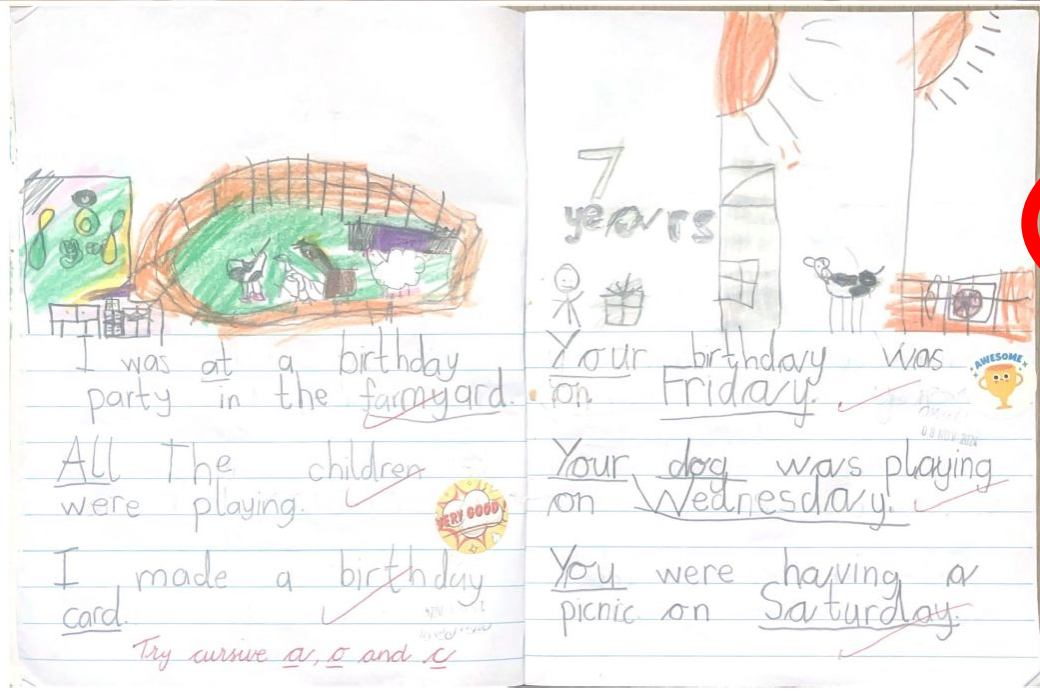 I was at a birthday
party in the farmyard.
All The children
were playing.
VERY GOOD
I made a birthday
card.
Try cursive a, o and c
7
years
Your birthday was
on Friday.
AWESOME
08 NOV 2024
Your dog was playing
on Wednesday.
You were having a
picnic on Saturday.